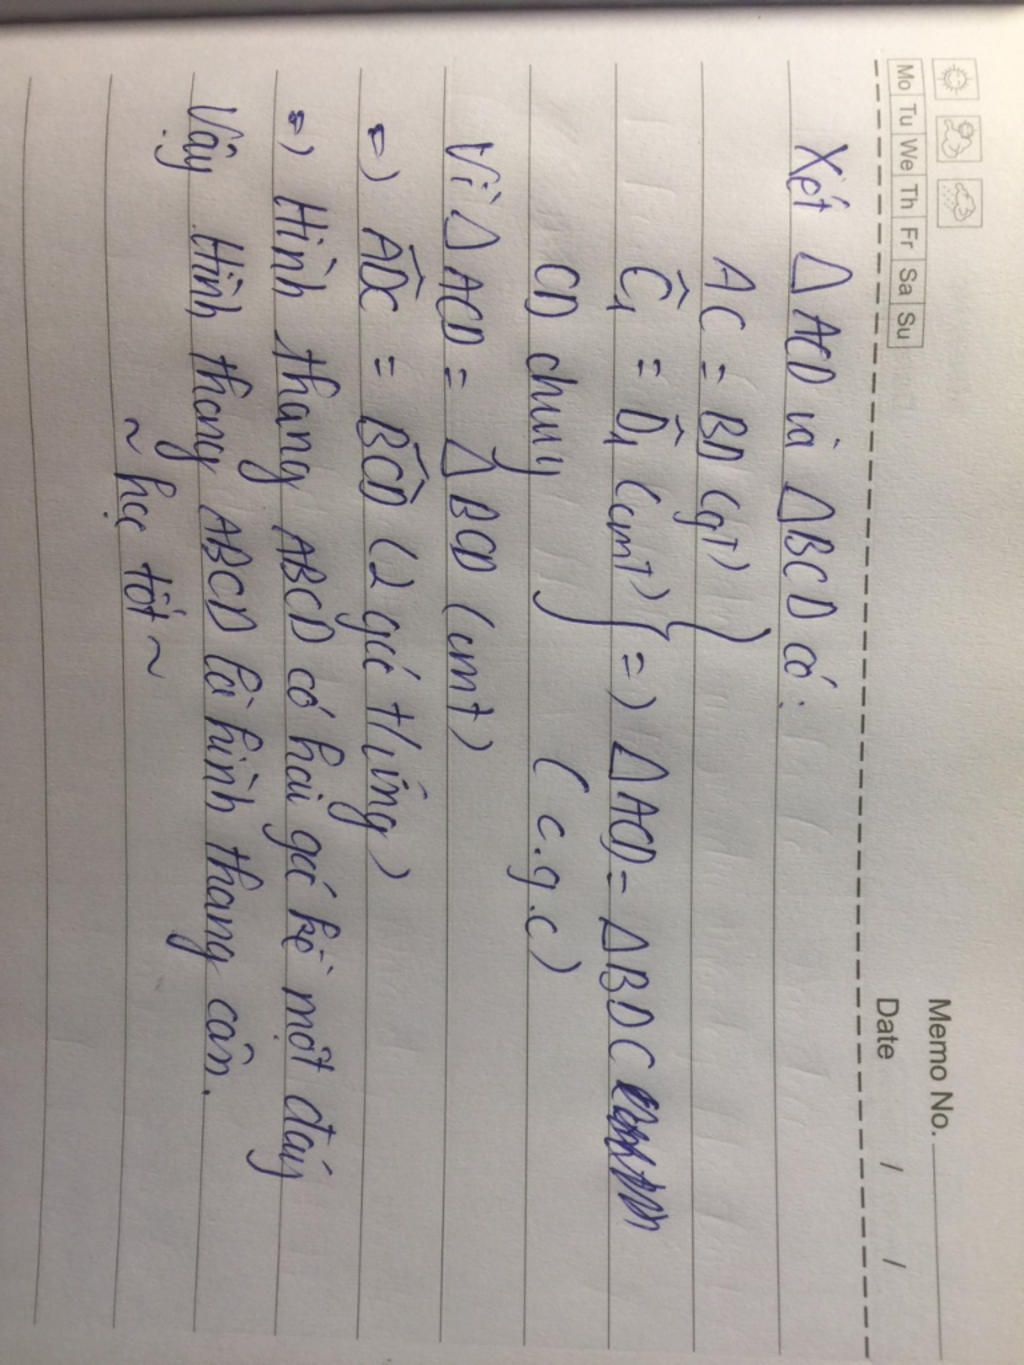 Memo No.
Mo Tu We Th Fr Sa Su
Date / /
Xét Δ ACD và ΔBCD có:
AC = BD (gT)
Ĉ₁ = D̂₁ (cmT) } => Δ ACD = Δ BDC
CD chung (c.g.c)
Vì Δ ACD = Δ BCD (cmt)
=> ADC = BCD (2 góc t/ứng)
=> Hình thang ABCD có hai góc kề một đáy
Vậy Hình thang ABCD là hình thang cân.
~ học tốt ~